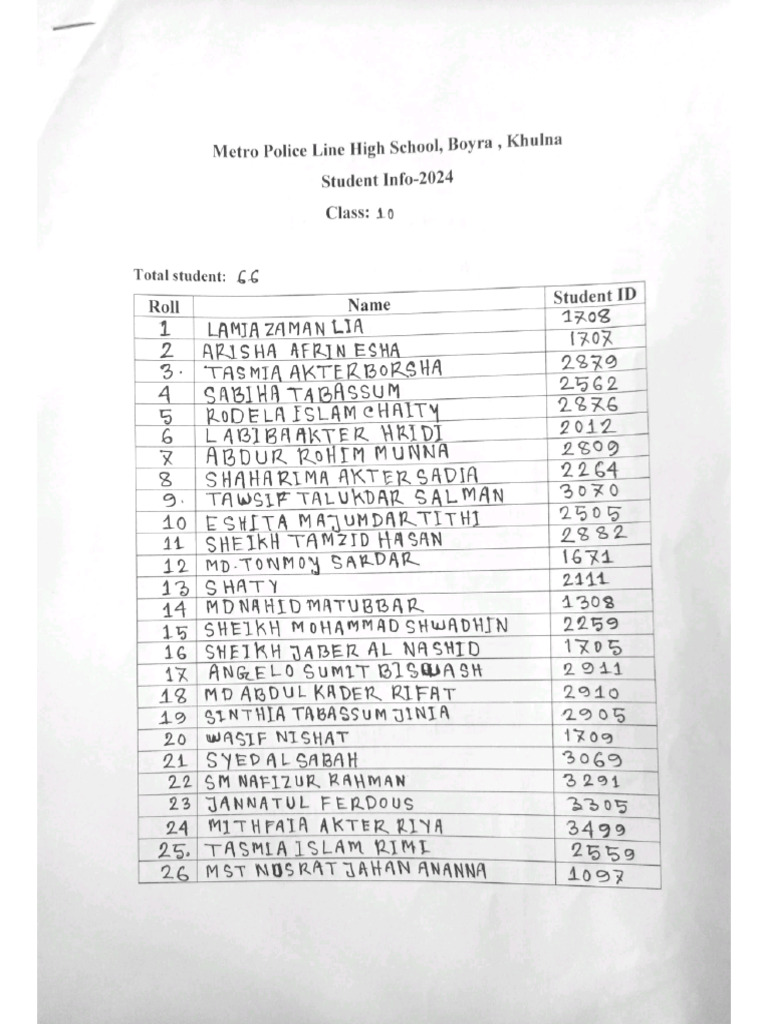 Metro Police Line High School, Boyra , Khulna
Student Info-2024
Class: 10
Total student: 66
Roll Name Student ID
1 LAMIA ZAMAN LIA 1708
2 ARISHA AFRIN ESHA 1707
3. TASMIA AKTER BORSHA 2879
4 SABIHA TABASSUM 2562
5 RODELA ISLAM CHAITY 2876
6 LABIBA AKTER HRIDI 2012
7 ABDUR ROHIM MUNNA 2809
8 SHAHARIMA AKTER SADIA 2264
9. TAWSIF TALUKDAR SALMAN 3070
10 ESHITA MAJUMDAR TITHI 2505
11 SHEIKH TAMZID HASAN 2882
12 MD. TONMOY SARDAR 1671
13 SHATY 2111
14 MD NAHID MATUBBAR 1308
15 SHEIKH MOHAMMAD SHWADHIN 2259
16 SHEIKH JABER AL NASHID 1705
17 ANGELO SUMIT BISWASH 2911
18 MD ABDUL KADER RIFAT 2910
19 SINTHIA TABASSUM JINIA 2905
20 WASIF NISHAT 1709
21 SYED AL SABAH 3069
22 SM NAFIZUR RAHMAN 3291
23 JANNATUL FERDOUS 3305
24 MITHFAIA AKTER RIYA 3499
25. TASMIA ISLAM RIMI 2559
26 MST NUSRAT JAHAN ANANNA 1097